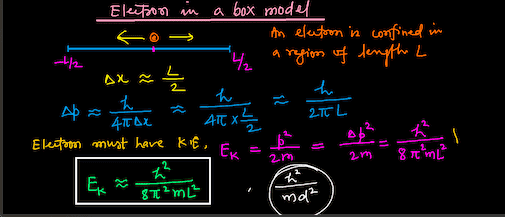 Electron in a box model
An electron is confined in
a region of length L
-L/2
L/2
Δx ≈ L/2
Δp ≈ h/4πΔx ≈ h/4π×L/2 ≈ h/2πL
Electron must have K.E. E_K = p²/2m = Δp²/2m = h²/8π²mL²
E_K ≈ h²/8π²mL²
h²/md²